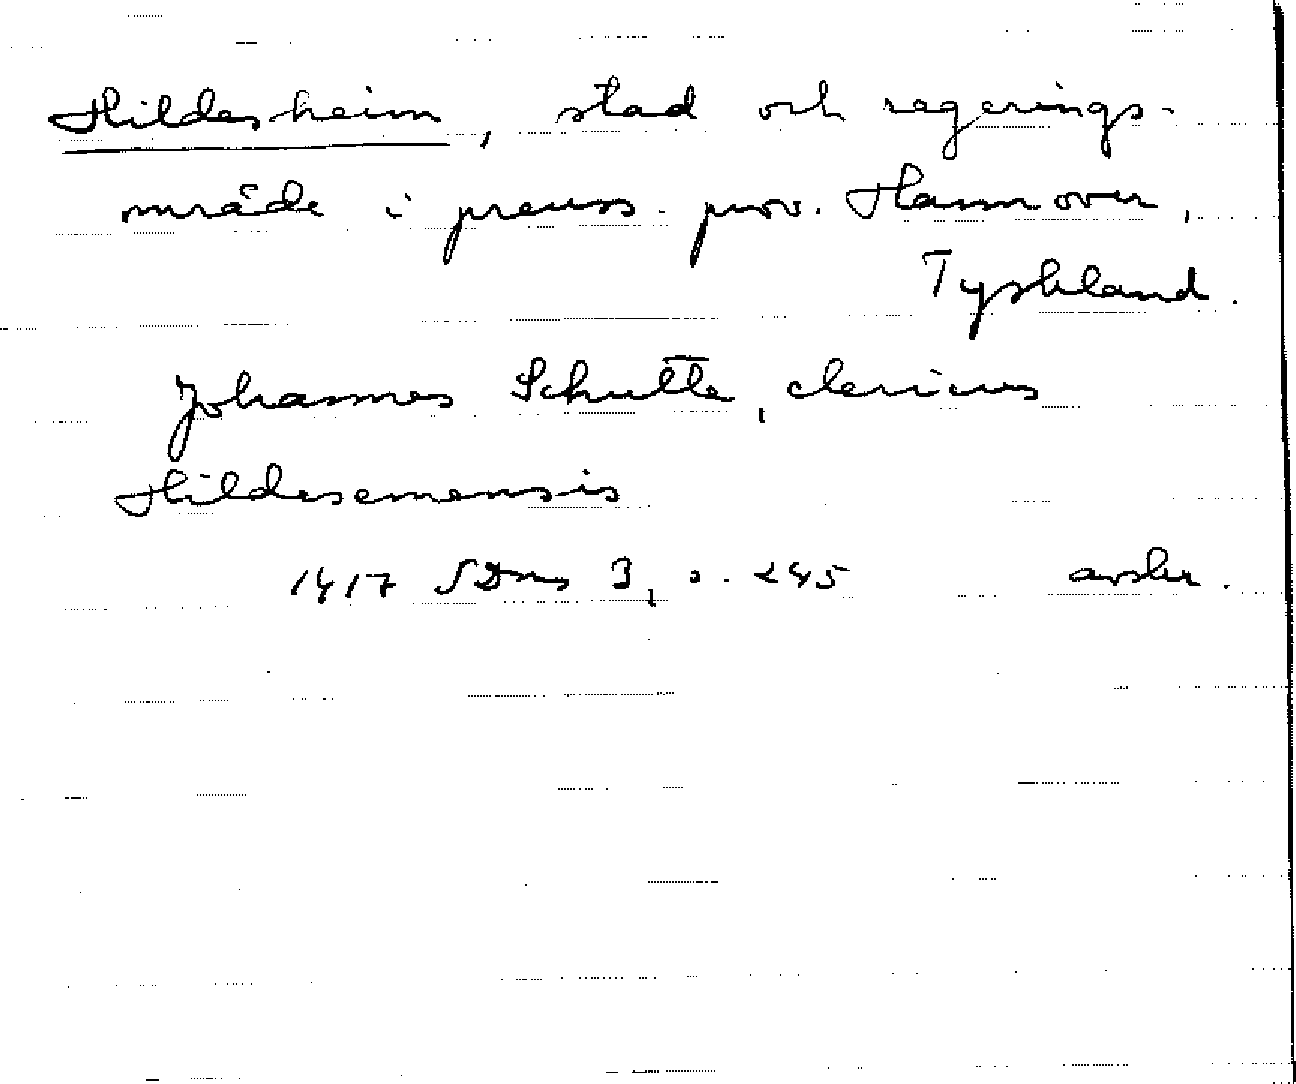 Hildesheim, stad och regerings-
mråde i preuss. prov. Hannover,
Tyskland.
Johannes Schutte, clericus
Hildesemensis
1417 SDns 3, s. 245 avskr.